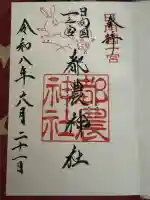 奉拝
日向国
一之宮
都農神社
都農
神社
令和八年六月二十一日